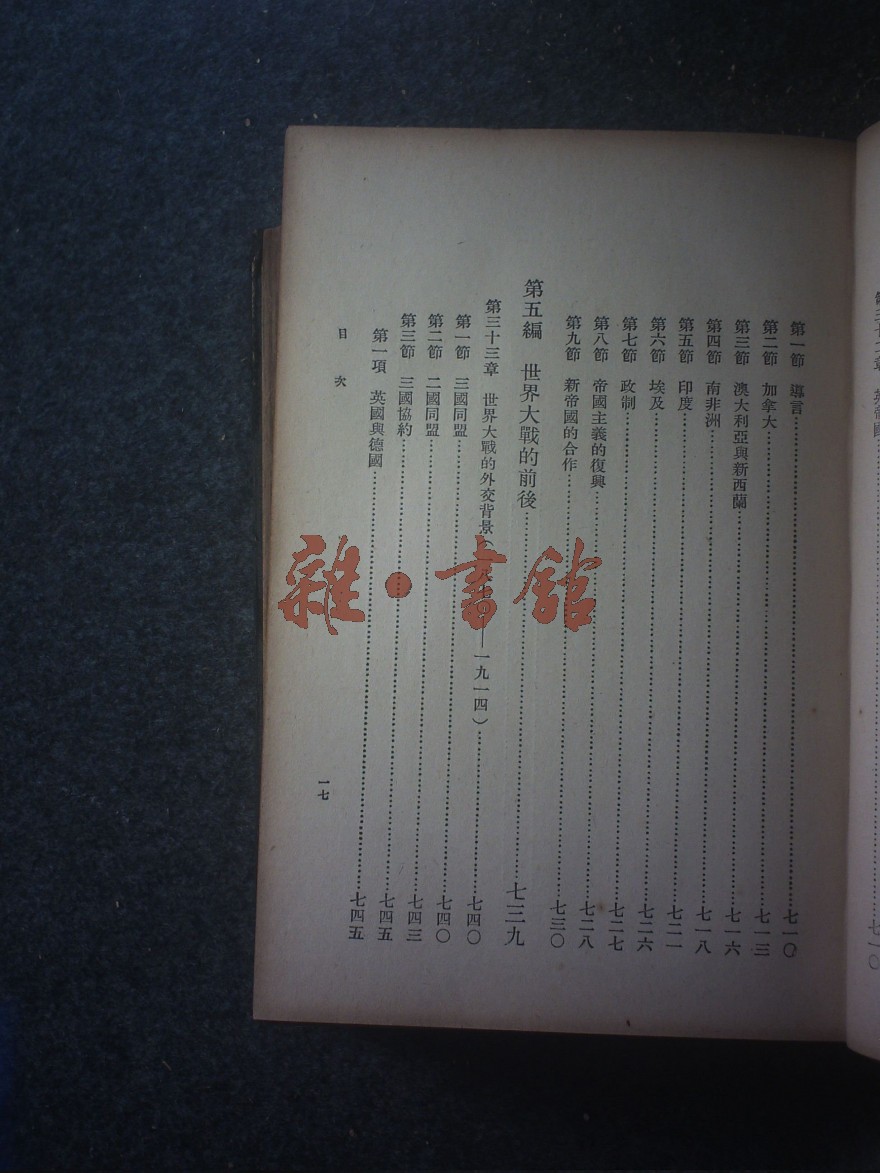 第一節 導言……七一〇
第二節 加拿大……七一三
第三節 澳大利亞與新西蘭……七一六
第四節 南非洲……七一八
第五節 印度……七二一
第六節 埃及……七二六
第七節 政制……七二七
第八節 帝國主義的復興……七二八
第九節 新帝國的合作……七三〇
第五編 世界大戰的前後……七三九
第三十三章 世界大戰的外交背景(——一九一四)……七四〇
第一節 三國同盟……七四〇
第二節 二國同盟……七四三
第三節 三國協約……七四五
第一項 英國與德國……七四五
目次
一七
雜·書館